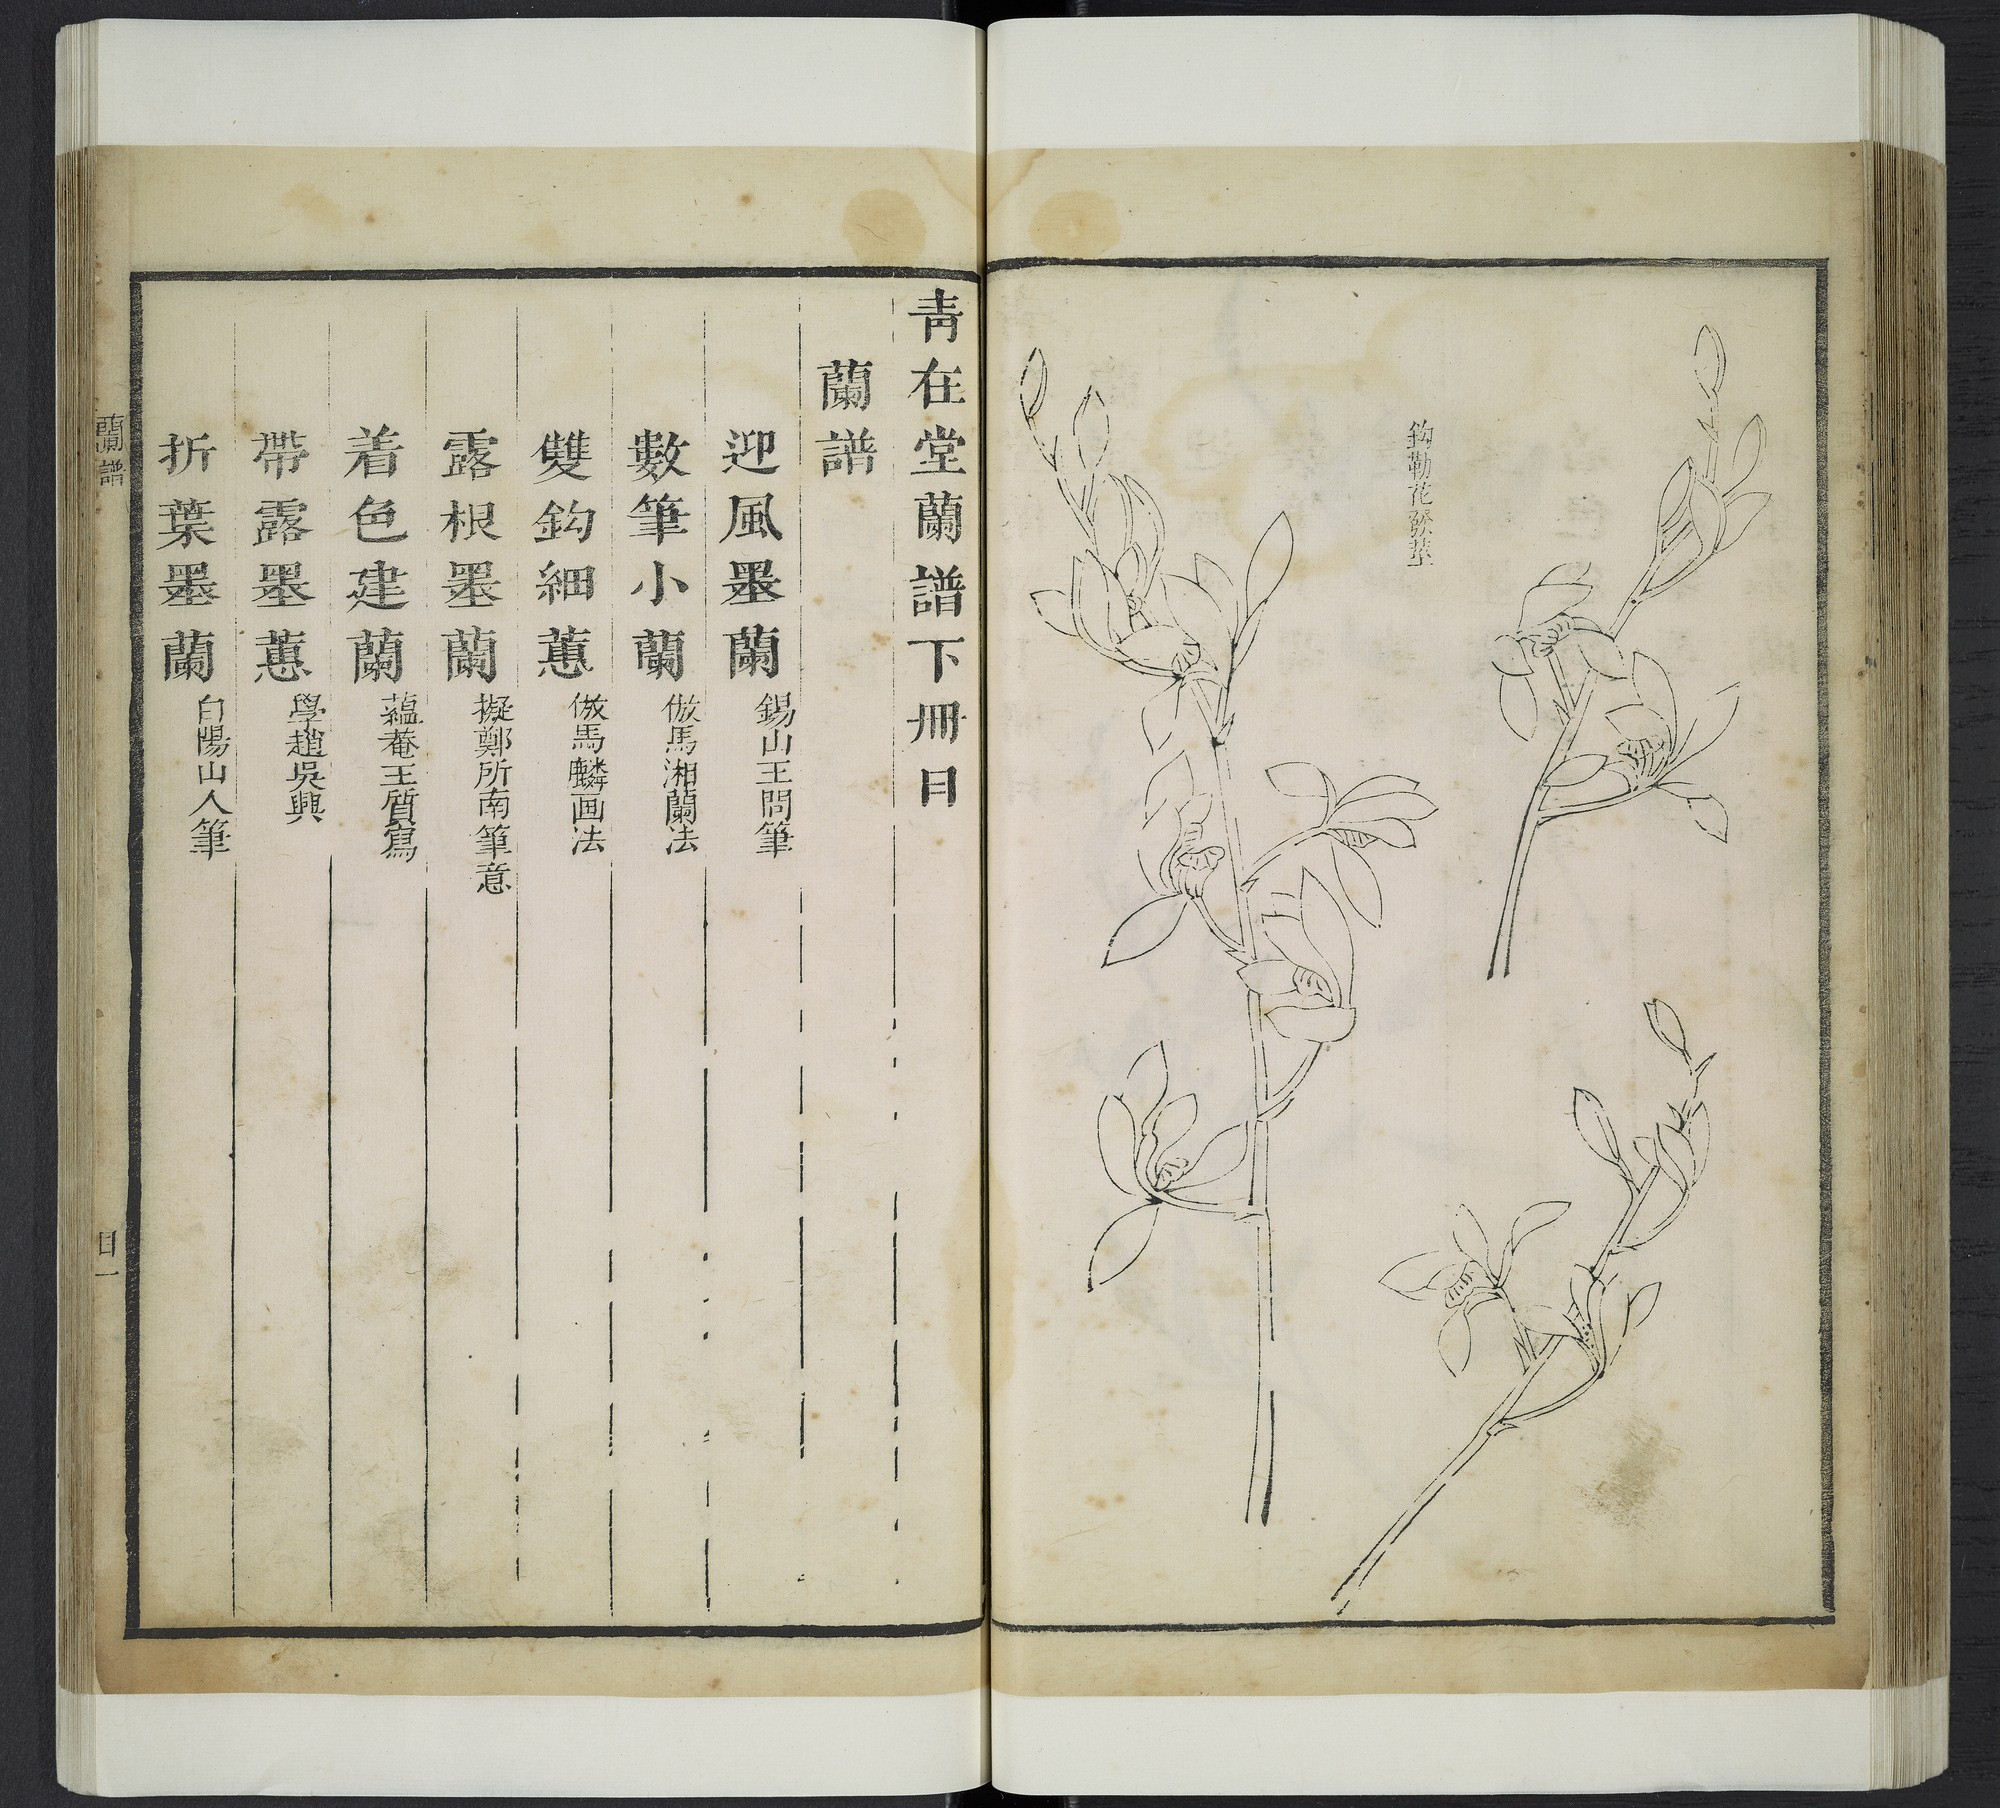 鈎勒花發莖
靑在堂蘭譜下冊目
蘭譜
迎風墨蘭 錫山王問筆
數筆小蘭 倣馬湘蘭法
雙鈎細蕙 倣馬麟画法
露根墨蘭 擬鄭所南筆意
着色建蘭 蘊菴王質寫
帶露墨蕙 學趙吳興
折葉墨蘭 白陽山人筆
蘭譜
目一